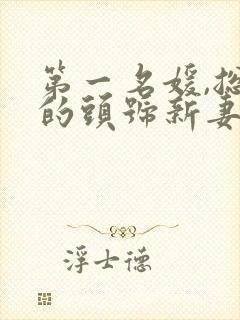 第一名媛,總
的頭號新妻
浮士德